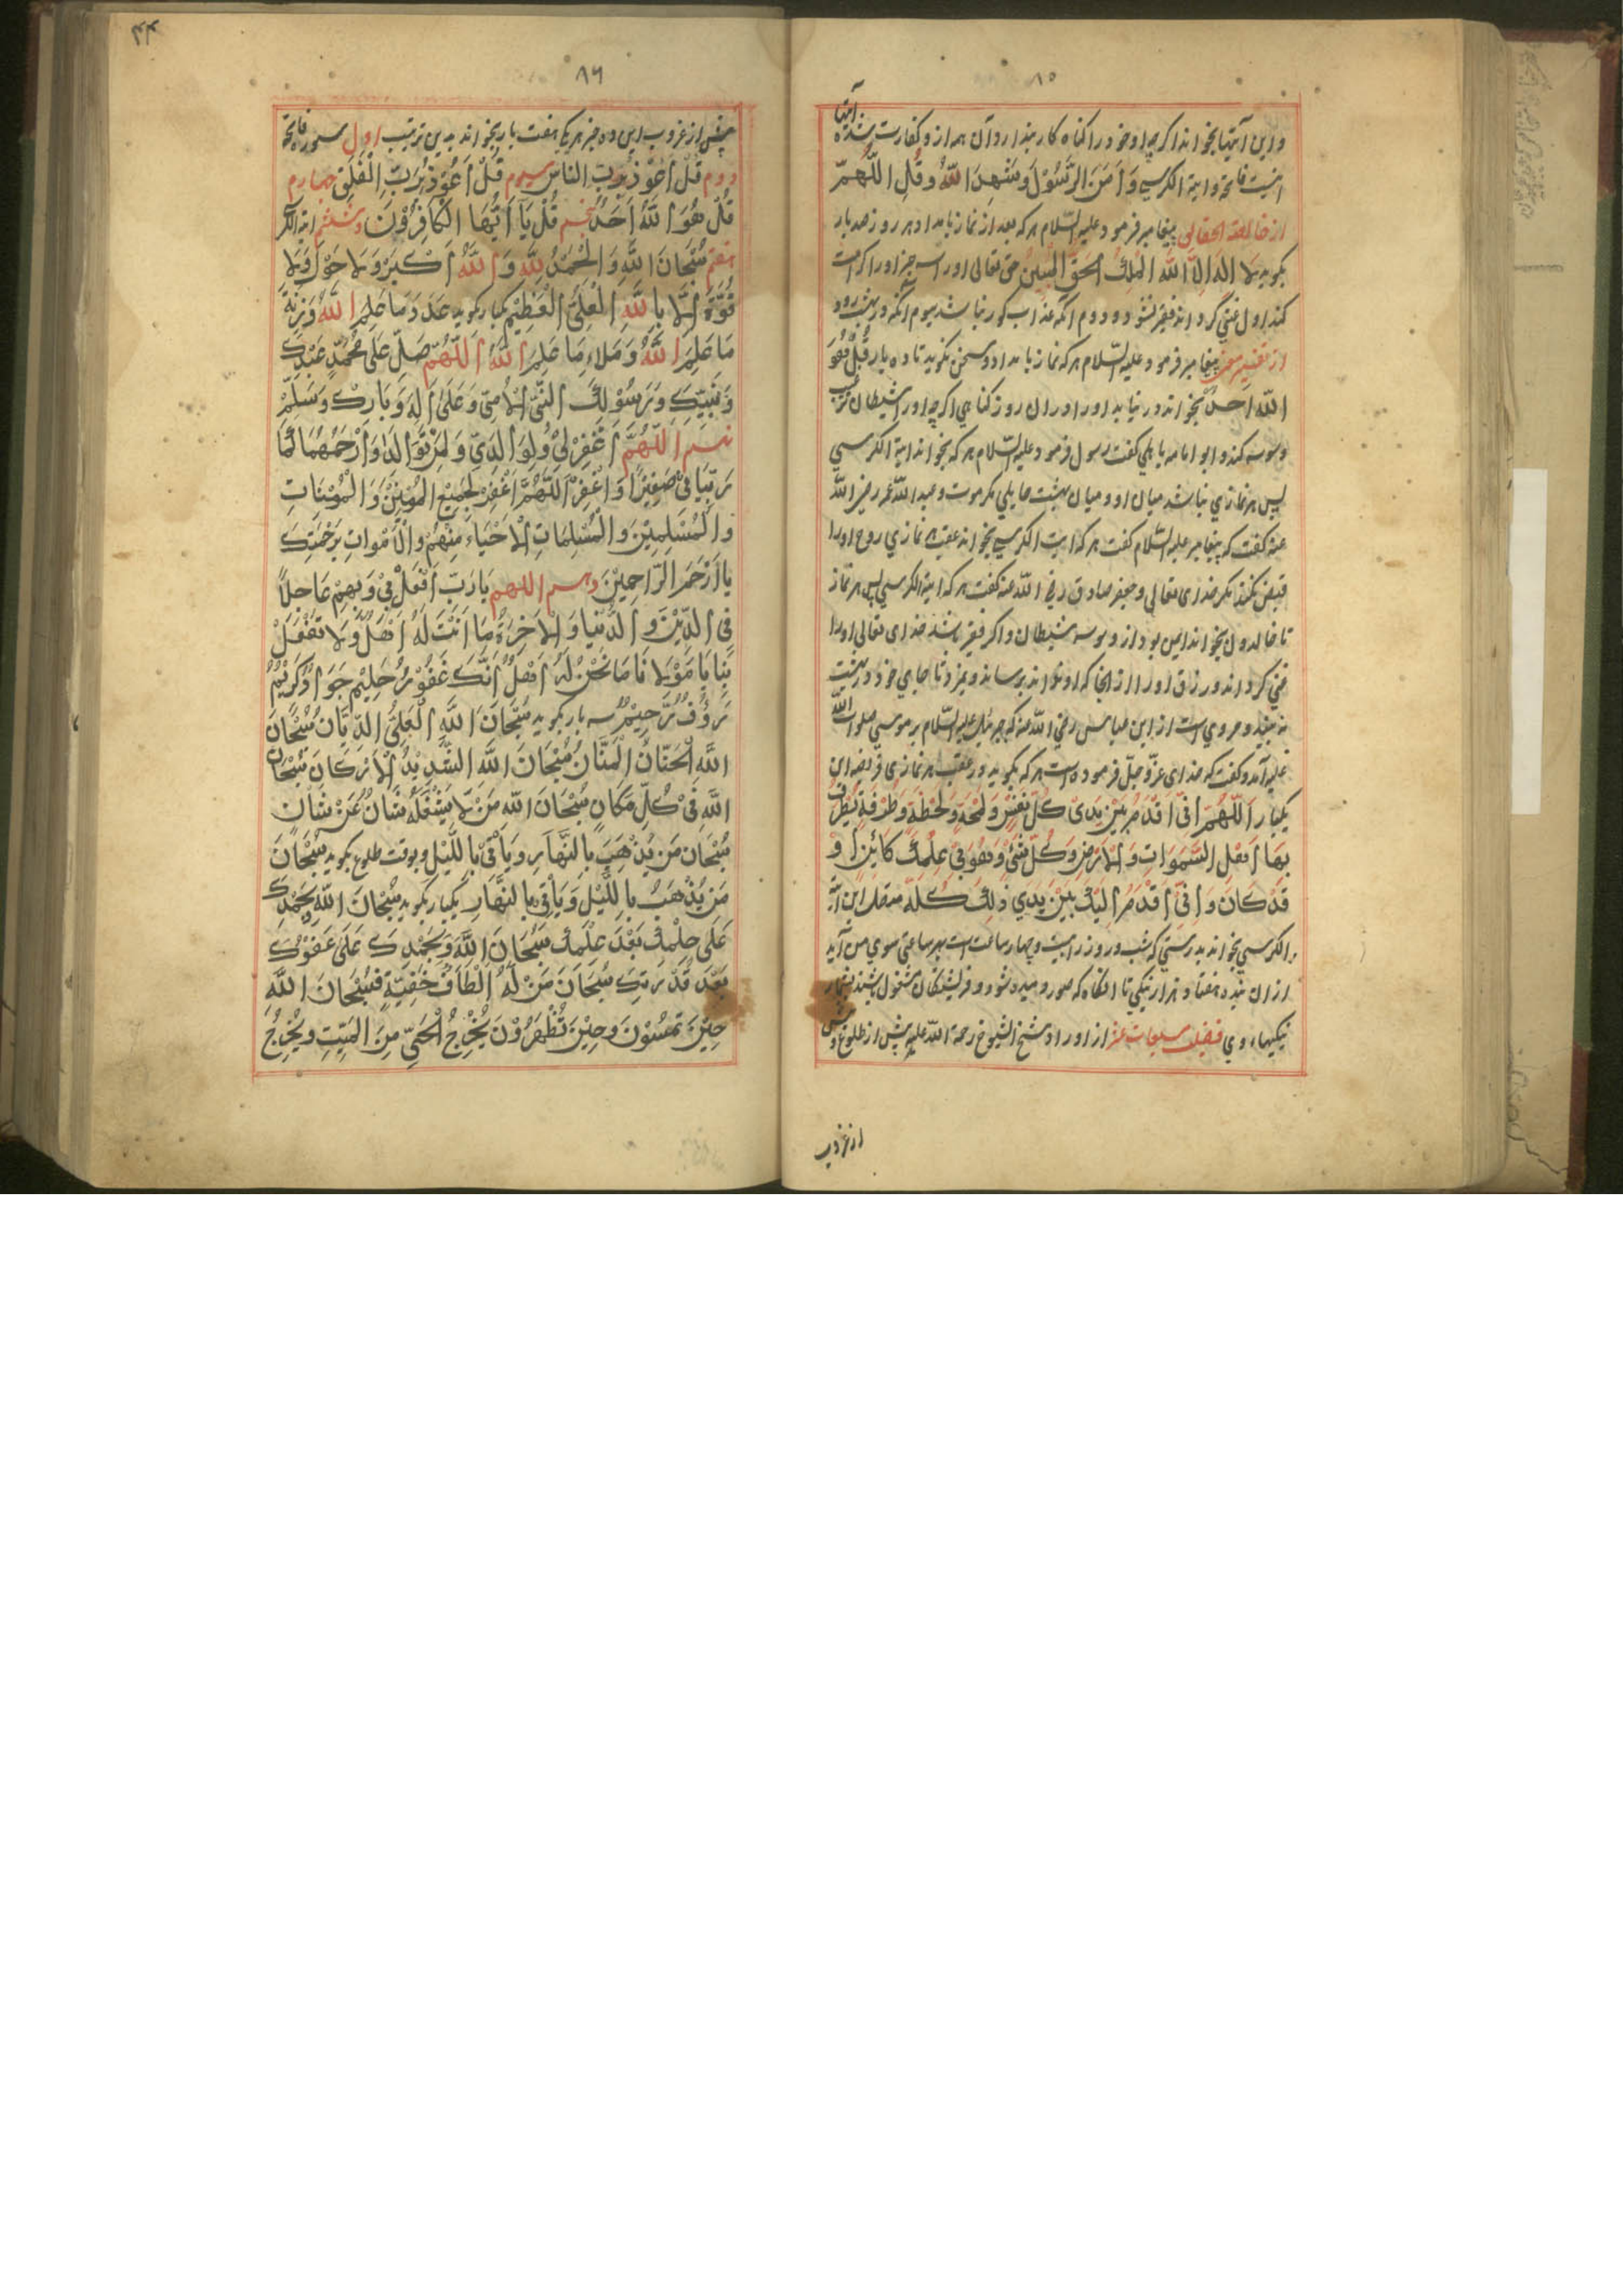 ٨٥
آیتها
و این آیتها بخواند اگرچه او خود را کناه کار پندارد آن همه از و کفارت شده
اینست فاتحة و ایة الکرسي وَ اٰمَنَ الرَّسُوْلُ وَ شَهِدَ اللّٰهُ وَ قُلِ اللّٰهُمَّ
از خالصة الحقایق پیغامبر فرمود علیه السّلام هر که بعد از نماز بامداد هر روز صد بار
بکوید لا اله اِلّا اللّٰه المَلِكُ الحَقُّ المُبِيْن حق تعالی او را سه چیز او را کرامت
کند اول غنی کرداند فقیر نشود و دوم آنکه عذاب کور نباشد سیوم آنکه در بهشت رود
از تفسیر پیغامبر فرمود علیه السّلام هر که نماز بامداد و سخن نکوید تا ده بار قُلْ هُوَ
اللّٰه اَحَدٌ بخواند در نیابد او را در ان روز کناهي اکرچه او را شیطان
وسوسه کند و ابو امامه باهلي کفت رسول فرمود علیه السّلام هر که بخواند ایة الکرسي
پس هر نمازي نباشد میان او و میان بهشت حایلي مکر موت و عبد اللّٰه عمر رضي اللّٰه
عنه کفت که پیغامبر علیه السّلام کفت هر که ایت الکرسي بخواند عقب هر نمازي روح او را
قبض نکند مکر خدای تعالی و جعفر صادق رضي اللّٰه عنه کفت هر که ایة الکرسي پس هر نماز
تا خالدون بخواند ایمن بود از وسوسه شیطان و اکر فقیر باشد خدای تعالی او را
غني کرداند و رزاق او را از انجا که او نداند برساند و نمیرد تا جاي خود در بهشت
نه بیند و مروي است از ابن عباس رضي اللّٰه عنه که جبرئیل علیه السّلام بر موسي صلوات اللّٰه
علیه آمد و کفت که خدای عزّ و جلّ فرموده است هر که بکوید در عقب هر نمازي فریضه این
یکبار اَللّٰهُمَّ اِنِّيْ اُقَدِّمُ بَيْنَ يَدَيْ كُلِّ نَفَسٍ وَ لَمْحَةٍ وَ لَحْظَةٍ وَ طَرْفَةٍ يَطْرِفُ
بِهَا اَهْلُ السَّمٰوَاتِ وَ الْاَرْضِ وَ كُلُّ شَيْءٍ وَ هُوَ فِيْ عِلْمِكَ كَائِنٌ اَوْ
قَدْ كَانَ وَ اِنِّيْ اُقَدِّمُ اِلَيْكَ بَيْنَ يَدَي ذٰلِكَ كُلِّهِ متصل این ایة
الکرسي بخواند بدرستي که شب و روز را بیست و چهار ساعت است بهر ساعتي سوي من آید
از ان بنده هفتاد هزار نیکي تا انکاه که صور دمیده شود و فریشتکان مشغول باشند بشمار
نیکیهاء وي فضیلت مسبعات عشر از اوراد شیخ الشیوخ رحمة اللّٰه علیه پیش از طلوع و پیش
از غروب
٨٦
پیش از غروب این ده چیز هر یک هفت بار بخواند بدین ترتیب اول سوره فاتحة
دوم قُلْ اَعُوْذُ بِرَبِّ النَّاس سیوم قُلْ اَعُوْذُ بِرَبِّ الْفَلَقِ چهارم
قُلْ هُوَ اللّٰهُ اَحَدٌ پنجم قُلْ يَا اَيُّهَا الْكَافِرُوْنَ و ششم ایة الکر
هفتم سُبْحَانَ اللّٰهِ وَ الْحَمْدُ لِلّٰهِ وَ اللّٰهُ اَكْبَرُ وَ لَا حَوْلَ وَ لَا
قُوَّةَ اِلَّا بِاللّٰهِ الْعَلِيِّ الْعَظِيْمِ یکبار بکوید عَدَدَ مَا عَلِمَ اللّٰهُ وَ زِنَةَ
مَا عَلِمَ اللّٰهُ وَ مِلَاءَ مَا عَلِمَ اللّٰهُ اَللّٰهُمَّ صَلِّ عَلٰى مُحَمَّدٍ عَبْدِكَ
وَ نَبِيِّكَ وَ رَسُوْلِكَ النَّبِيِّ الْاُمِّيِّ وَ عَلٰى اٰلِهٖ وَ بَارِكْ وَ سَلِّمْ
نهم اَللّٰهُمَّ اغْفِرْلِيْ وَ لِوَالِدَيَّ وَ لِمَنْ تَوَالَدَا وَ ارْحَمْهُمَا كَمَا
رَبَّيَانِيْ صَغِيْرًا وَ اغْفِرِ اللّٰهُمَّ اغْفِرْ لِجَمِيْعِ الْمُؤْمِنِيْنَ وَ الْمُؤْمِنَاتِ
وَ الْمُسْلِمِيْنَ وَ الْمُسْلِمَاتِ الْاَحْيَاءِ مِنْهُمْ وَ الْاَمْوَاتِ بِرَحْمَتِكَ
يَا اَرْحَمَ الرَّاحِمِيْنَ دهم اللهم يَا رَبِّ افْعَلْ بِيْ وَ بِهِمْ عَاجِلًا
فِي الدِّيْنِ وَ الدُّنْيَا وَ الْاٰخِرَةِ مَا اَنْتَ لَهُ اَهْلٌ وَ لَا تَفْعَلْ
بِنَا يَا مَوْلَانَا مَا نَحْنُ لَهُ اَهْلٌ اِنَّكَ غَفُوْرٌ حَلِيْمٌ جَوَادٌ كَرِيْمٌ
رَؤُفٌ رَّحِيْمٌ سه بار بکوید سُبْحَانَ اللّٰهِ الْعَلِيِّ الدَّيَّانِ سُبْحَانَ
اللّٰهِ الْحَنَّانِ الْمَنَّانِ سُبْحَانَ اللّٰهِ الشَّدِيْدِ الْاَرْكَانِ سُبْحَانَ
اللّٰهِ فِيْ كُلِّ مَكَانٍ سُبْحَانَ اللّٰهِ مَنْ لَّا يَشْغَلُهٗ شَانٌ عَنْ شَانٍ
سُبْحَانَ مَنْ يُذْهِبُ بِالنَّهَارِ وَ يَأْتِيْ بِاللَّيْلِ و بوقت طلوع بکوید سُبْحَانَ
مَنْ يُذْهِبُ بِاللَّيْلِ وَ يَأْتِيْ بِالنَّهَارِ یکبار بکوید سُبْحَانَ اللّٰهِ وَ بِحَمْدِكَ
عَلٰى حِلْمِكَ بَعْدَ عِلْمِكَ سُبْحَانَ اللّٰهِ وَ بِحَمْدِكَ عَلٰى عَفْوِكَ
بَعْدَ قُدْرَتِكَ سُبْحَانَ مَنْ لَهُ اَلْطَافٌ خَفِيَّةٌ فَسُبْحَانَ اللّٰهِ
حِيْنَ تُمْسُوْنَ وَ حِيْنَ تُظْهِرُوْنَ يُخْرِجُ الْحَيَّ مِنَ الْمَيِّتِ وَ يُخْرِجُ